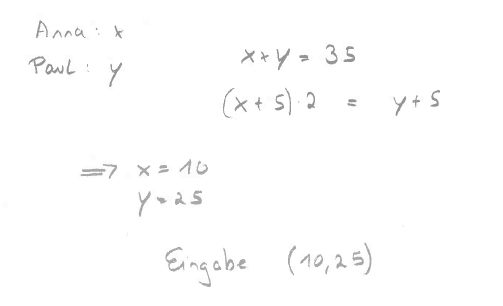 Anna: x
Paul: y
x+y = 35
(x+5)·2 = y+5
=> x = 10
y = 25
Eingabe (10,25)